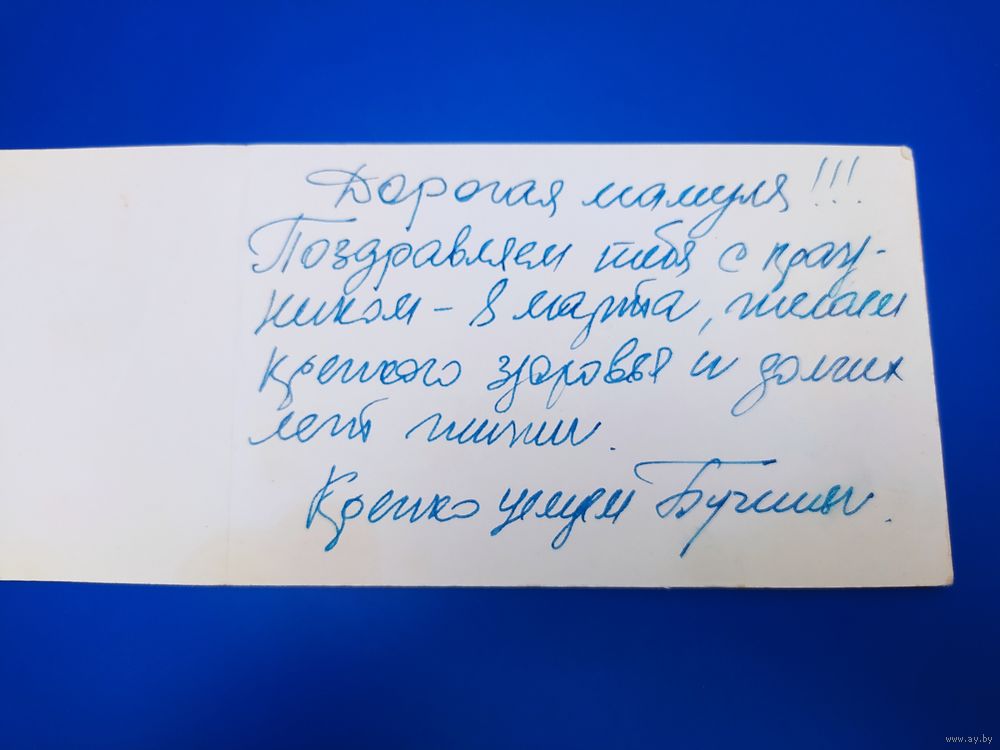 Дорогая мамуля!!!
Поздравляем тебя с празд-
ником - 8 марта, желаем
крепкого здоровья и долгих
лет жизни.
Крепко целуем
www.ay.by